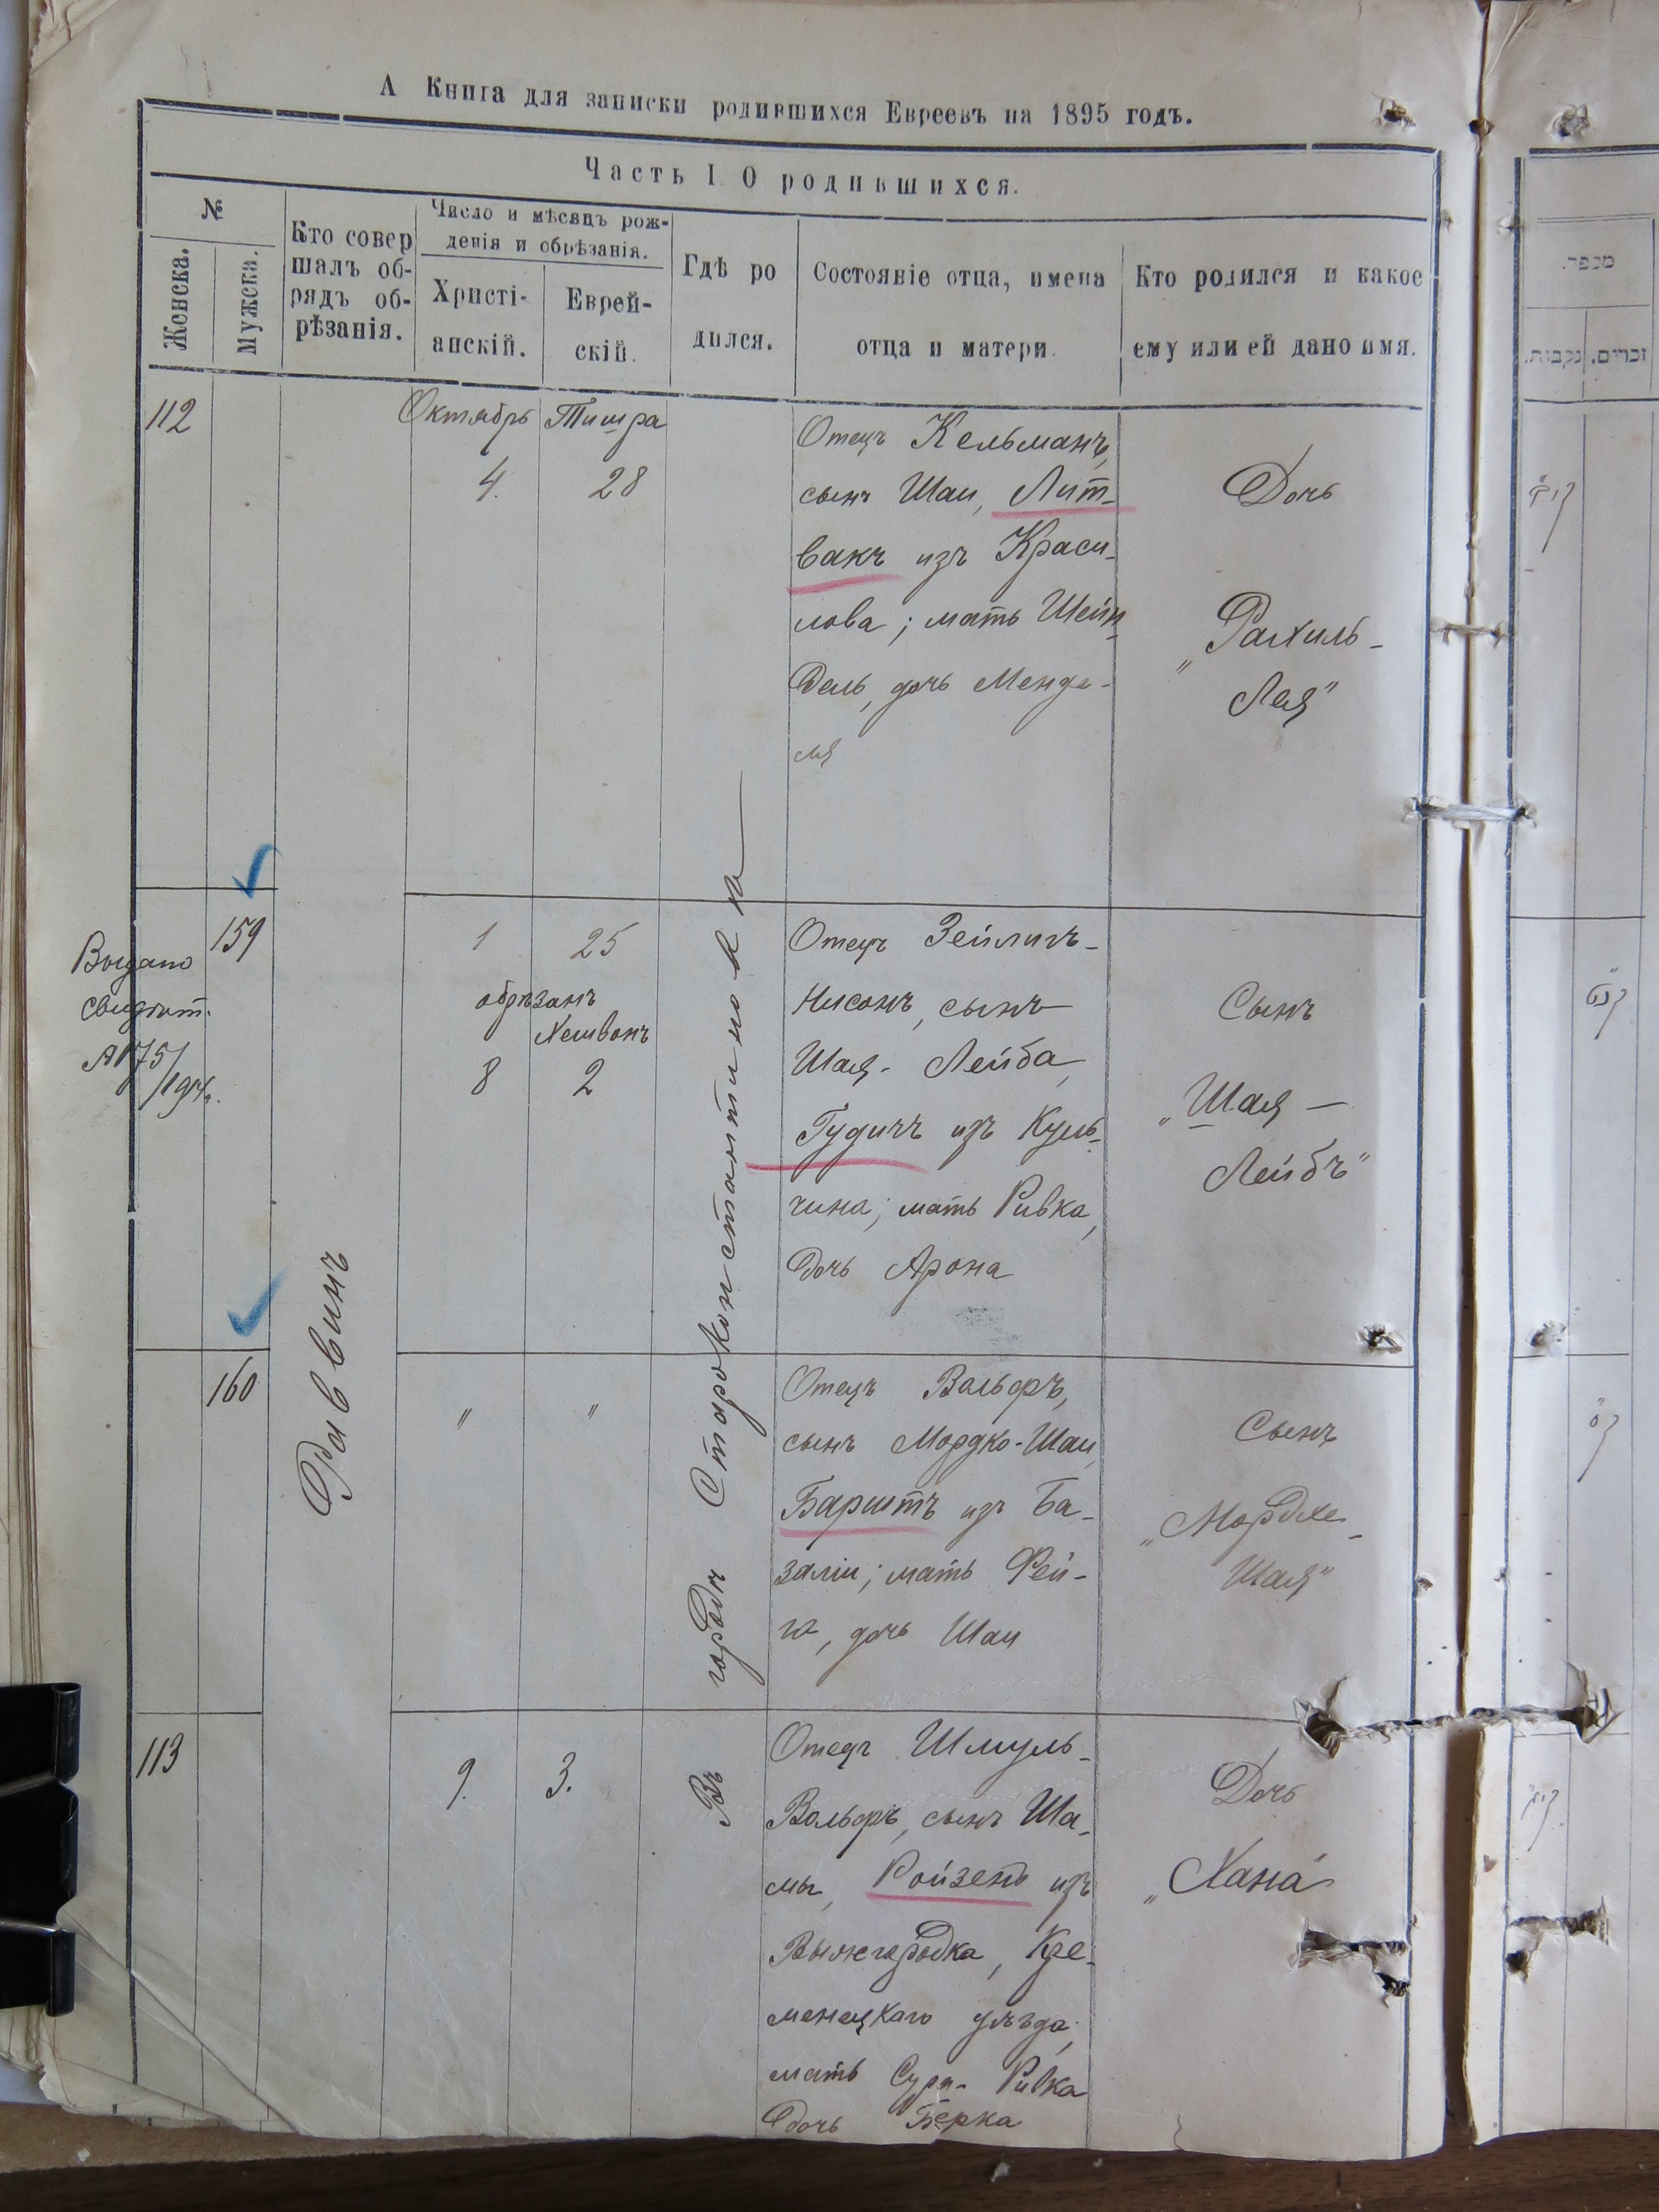 А Книга для записки родившихся Евреевъ на 1895 годъ.
Часть I. О родившихся.
№
Женска.
Мужска.
Кто совер
шалъ об-
рядъ об-
рѣзанія.
Число и мѣсяцъ рож-
денія и обрѣзанія.
Христі-
анскій.
Еврей-
скій.
Гдѣ ро
дился.
Состояніе отца, имена
отца и матери.
Кто родился и какое
ему или ей дано имя.
מספר.
זכרים.
נקבות.
112
Октябрь
Тишра
4.
28
Отецъ Кельманъ,
сынъ Шаи, Лит-
вакъ изъ Краси-
лова; мать Шейн
дель, дочь Менде-
ля
Дочь
„Рахиль-
Лея"
Выдано
свидѣт.
159
1
25
обрѣзанъ
Хешвонъ
8
2
Отецъ Зейлигъ-
Нисонъ, сынъ
Шая-Лейба,
Гудичъ изъ Куль-
чина; мать Ривка,
дочь Арона
Сынъ
„Шая —
Лейбъ"
Раввинъ
Въ городѣ Староконстантиновѣ
160
"
"
Отецъ Вольфъ,
сынъ Мордко-Шаи,
Бариттъ изъ Ба-
залiи; мать Фей-
га, дочь Шаи
Сынъ
„Мордхе-
Шая"
113
9.
3.
Отецъ Шмуль-
Вольфъ, сынъ Ша-
мы, Ройзенъ изъ
Вышегородка, Кре-
менецкаго уѣзда,
мать Сура-Ривка
дочь Берка
Дочь
„Хана"